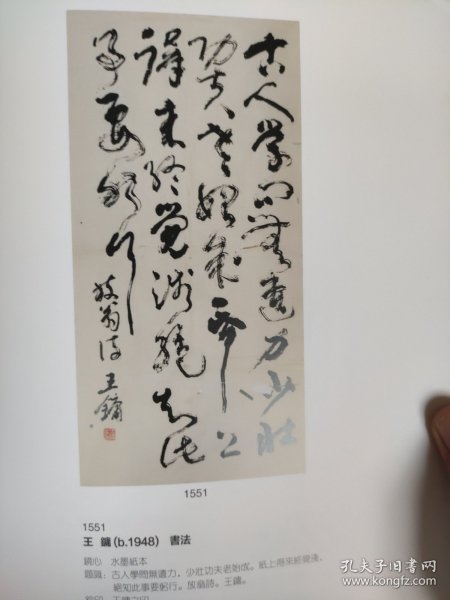 古人學問無遺力少壯
功夫老始成紙上
得来終覺淺絕知此
事要躬行
放翁詩 王鏞
1551
1551
王 鏞(b.1948) 書法
鏡心 水墨紙本
題識：古人學問無遺力，少壯功夫老始成。紙上得來終覺淺，
絕知此事要躬行。放翁詩。王鏞。
鈐印：王鏞之印
孔夫子旧书网
www.kongfz.com